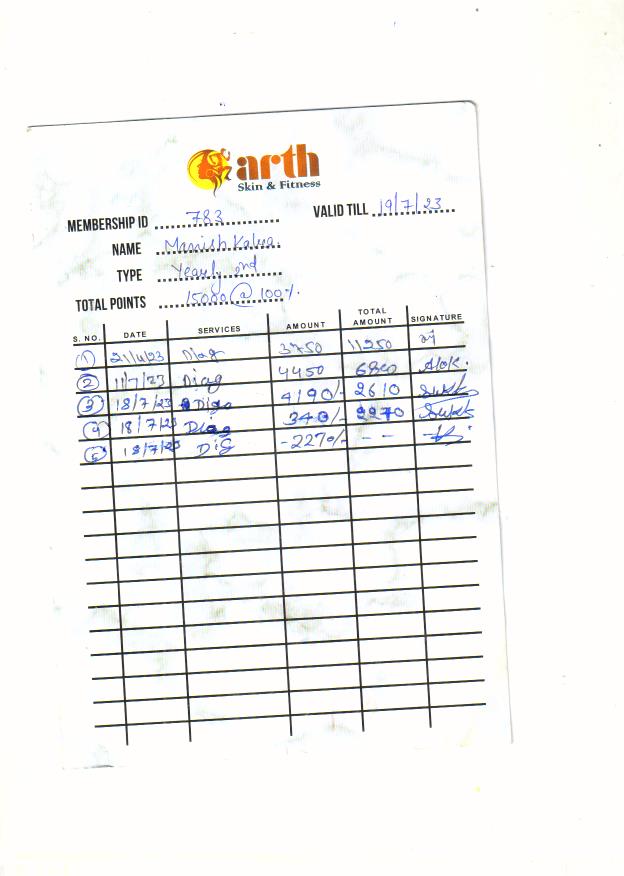 arth
Skin & Fitness
MEMBERSHIP ID 783 VALID TILL 19/7/23
NAME Manish Kalra.
TYPE Yearly 2nd
TOTAL POINTS 15000 @ 100%.
S. NO. DATE SERVICES AMOUNT TOTAL AMOUNT SIGNATURE
1 21/4/23 Diag 3750 11250
2 11/7/23 Diag 4450 6800 Alok.
3 18/7/23 Diag 4190/- 2610
4 18/7/23 Diag 340/- 2270
5 18/7/23 DiG -2270/- - -